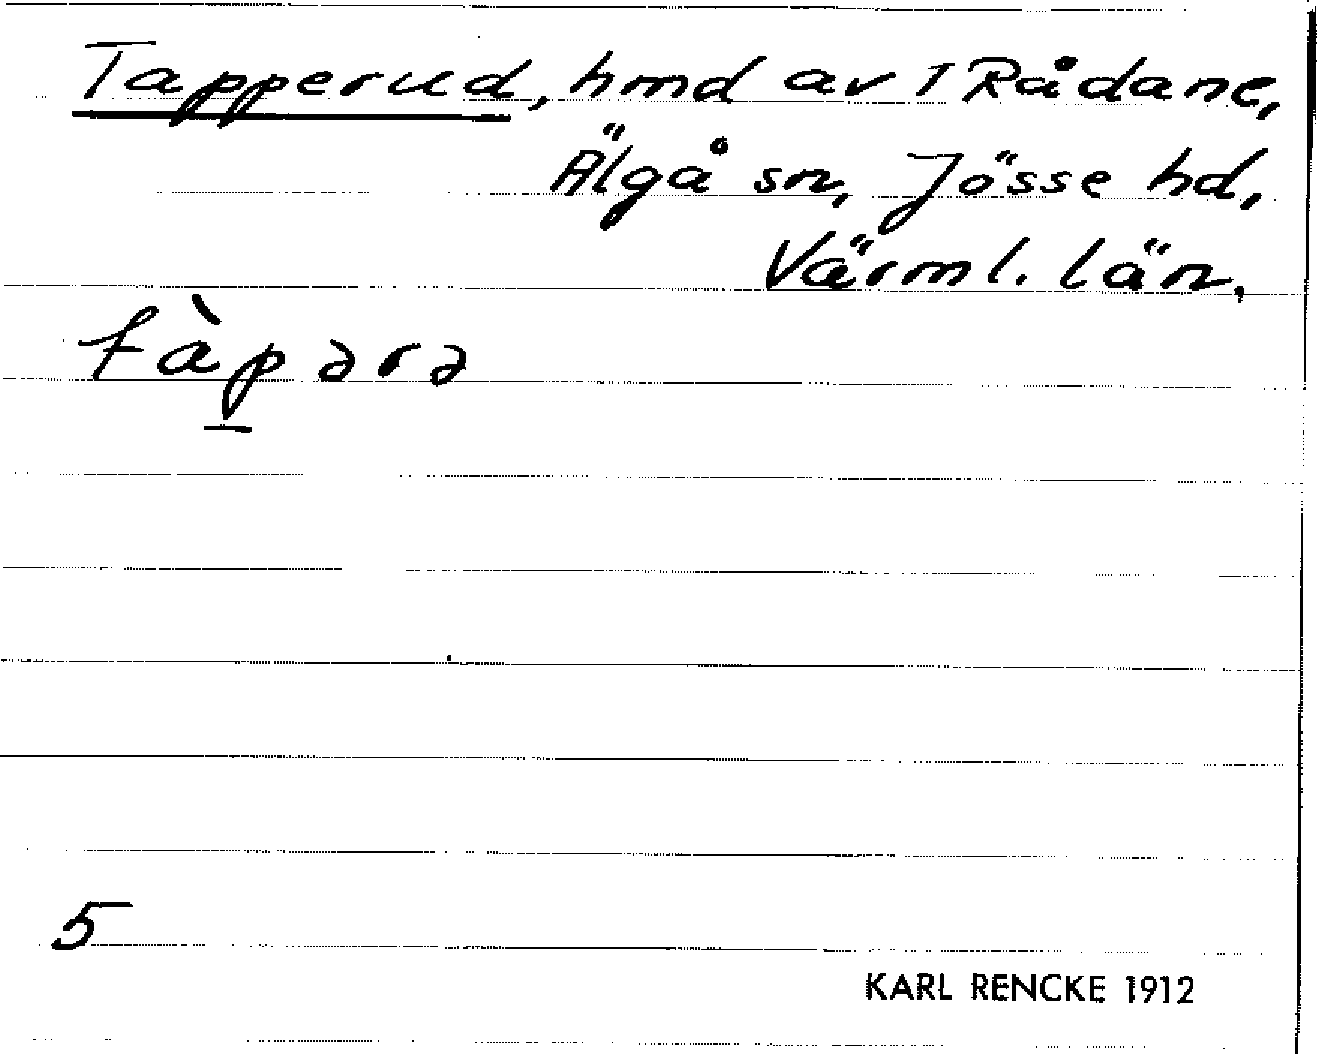 Tapperud, hmd av 1 Rådane,
Älgå sn, Jösse hd,
Värml. län.
tàp̲ərə
5
KARL RENCKE 1912